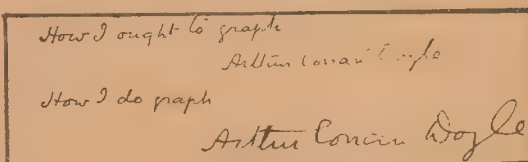 How I ought to graph
Arthur Conan Doyle
How I do graph
Arthur Conan Doyle